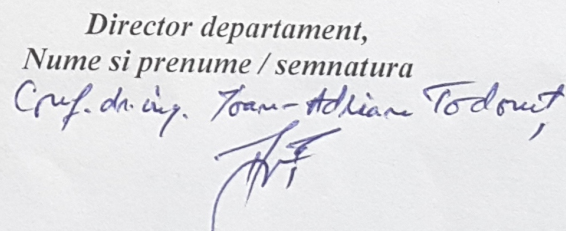 Director departament,
Nume si prenume / semnatura
Conf. dr. ing. Ioan-Adrian Todoruț